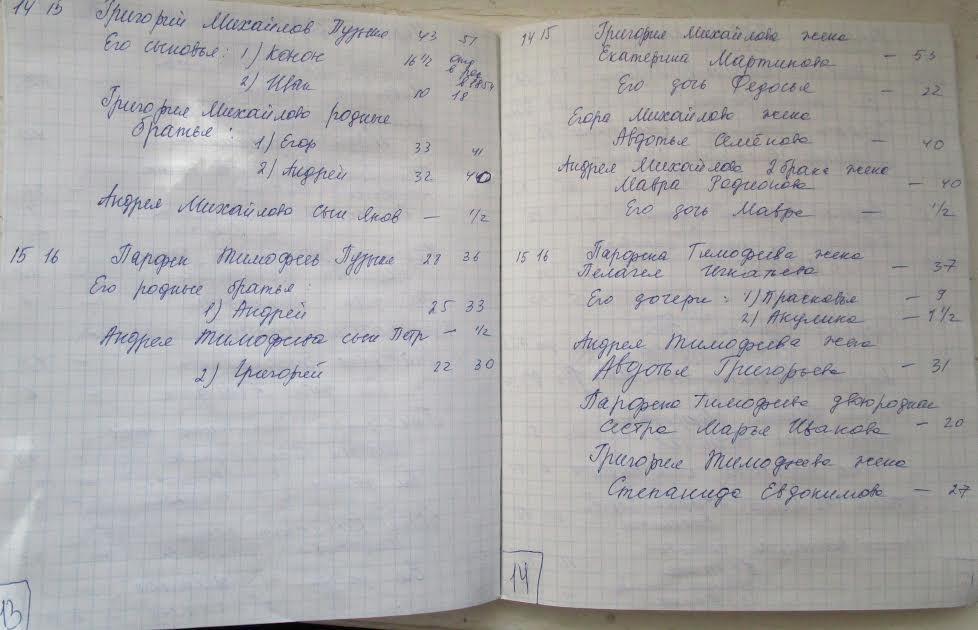 14 15 Григорий Михайлов Пузыня 43 51
Его сыновья: 1) Конон 16 1/2 отд в рек в 1854
2) Иван 10 18
Григория Михайлова родные
братья:
1) Егор 33 41
2) Андрей 32 40
Андрея Михайлова сын Яков — 1/2
15 16 Парфен Тимофеев Пузыня 28 36
Его родные братья:
1) Андрей 25 33
Андрея Тимофеева сын Петр — 1/2
2) Григорий 22 30
13
14 15 Григория Михайлова жена
Екатерина Мартинова — 53
Его дочь Федосья — 22
Егора Михайлова жена
Авдотья Семёнова — 40
Андрея Михайлова 2 брака жена
Мавра Родионова — 40
Его дочь Мавра — 1/2
15 16 Парфена Тимофеева жена
Пелагея Игнатьева — 37
Его дочери: 1) Прасковья — 9
2) Акулина — 1 1/2
Андрея Тимофеева жена
Авдотья Григорьева — 31
Парфена Тимофеева двоюродная
сестра Марья Иванова — 20
Григория Тимофеева жена
Степанида Евдокимова — 27
14